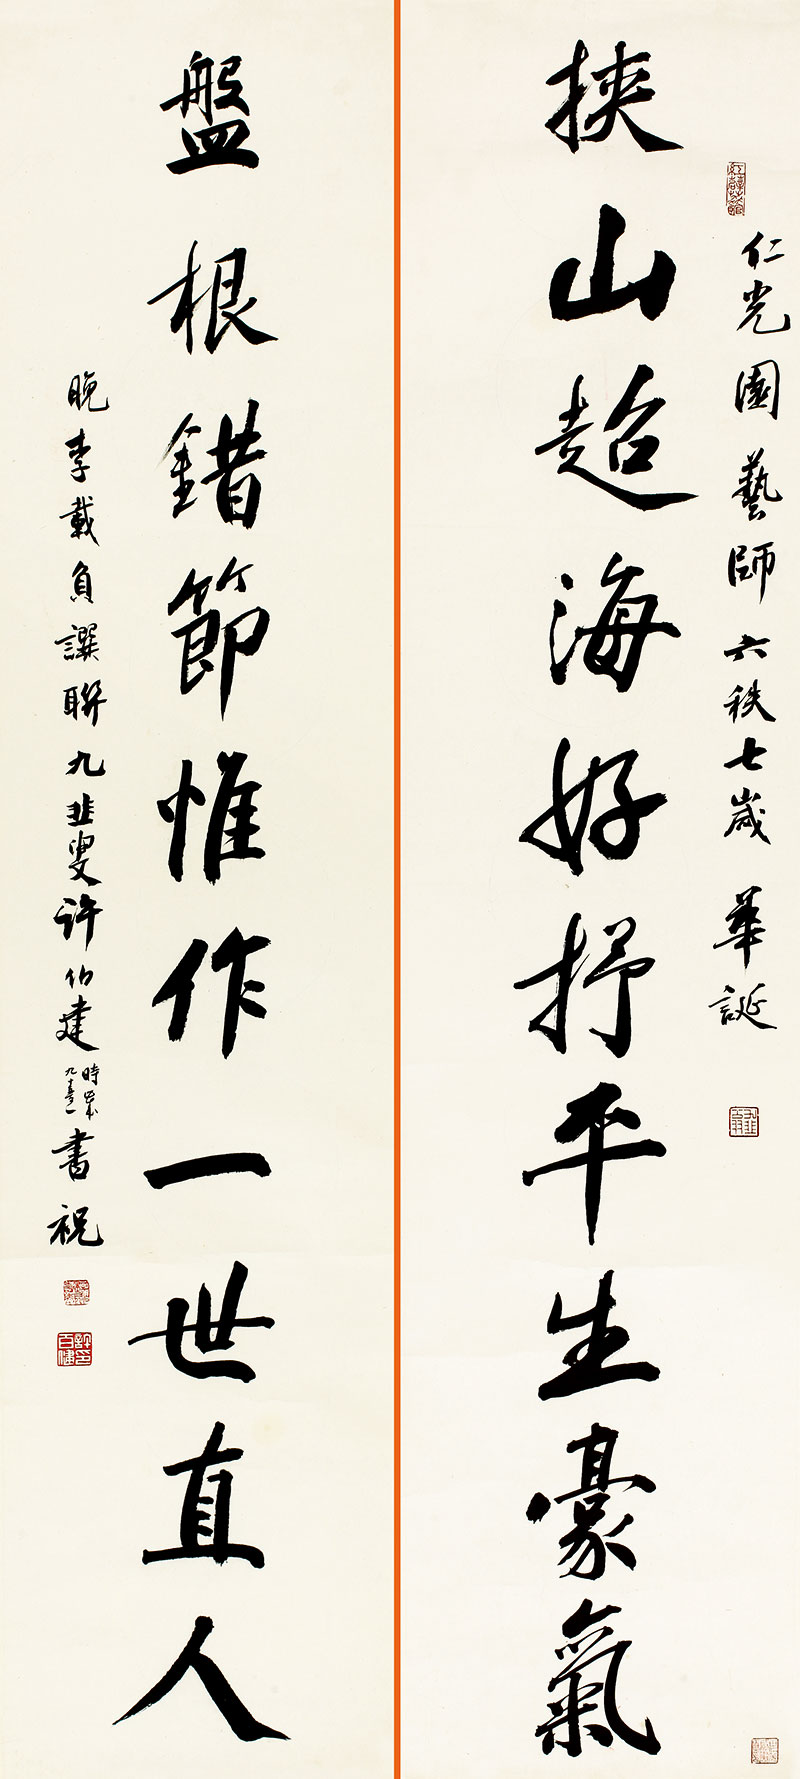 仁光園藝師六秩七歲華誕
挾山超海好抒平生豪氣
盤根錯節惟作一世直人
晚李載負譔聯九韭叟许伯建
書祝